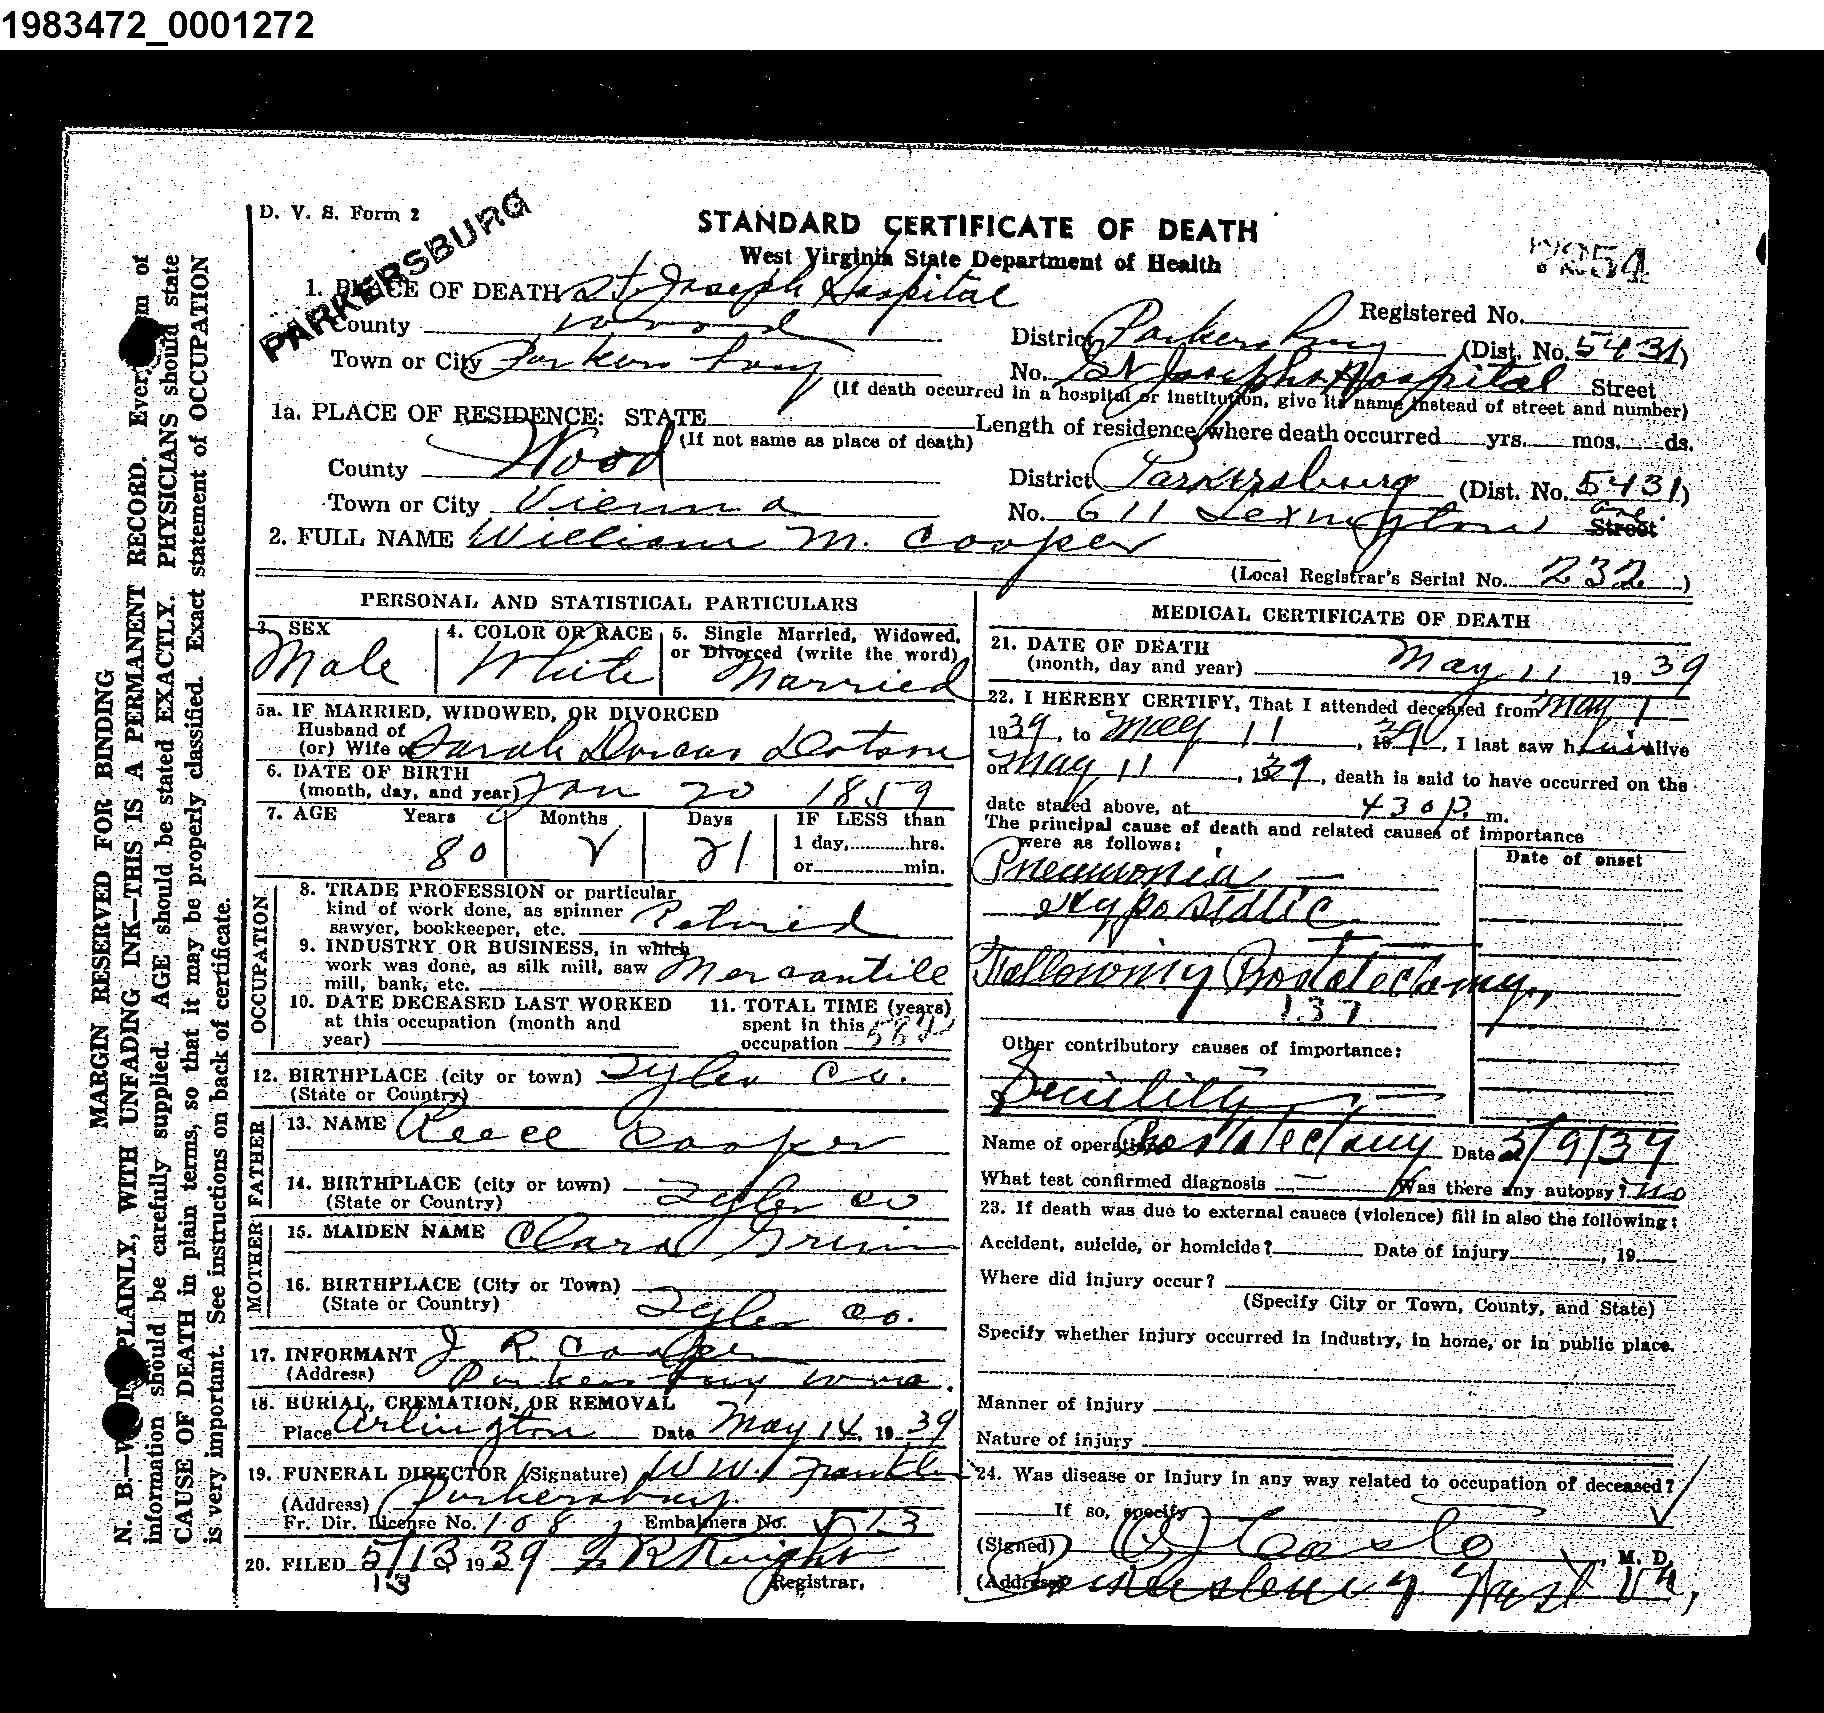 1983472_0001272
D. V. S. Form 2
PARKERSBURG
STANDARD CERTIFICATE OF DEATH
West Virginia State Department of Health
54
1. PLACE OF DEATH St. Joseph Hospital
Registered No.
County Wood
District Parkersburg (Dist. No. 5431)
Town or City Parkersburg
No. St Josephs Hospital Street
(If death occurred in a hospital or institution, give its name instead of street and number)
1a. PLACE OF RESIDENCE: STATE
(If not same as place of death)
Length of residence where death occurred yrs. mos. ds.
County Wood
District Parkersburg (Dist. No. 5431)
Town or City Vienna
No. 611 Lexington Ave. Street
2. FULL NAME William M. Cooper
(Local Registrar's Serial No. 232)
PERSONAL AND STATISTICAL PARTICULARS
3. SEX Male
4. COLOR OR RACE White
5. Single Married, Widowed,
or Divorced (write the word)
Married
5a. IF MARRIED, WIDOWED, OR DIVORCED
Husband of
(or) Wife of Sarah Dorcas Dotson
6. DATE OF BIRTH
(month, day, and year) Jan 20 1859
7. AGE Years Months Days IF LESS than
80 2 21
1 day, hrs.
or min.
OCCUPATION
8. TRADE PROFESSION or particular
kind of work done, as spinner
sawyer, bookkeeper, etc. Retired
9. INDUSTRY OR BUSINESS, in which
work was done, as silk mill, saw
mill, bank, etc. Mercantile
10. DATE DECEASED LAST WORKED
at this occupation (month and
year)
11. TOTAL TIME (years)
spent in this
occupation 58
12. BIRTHPLACE (city or town) Tyler Co.
(State or Country)
FATHER
13. NAME Reece Cooper
14. BIRTHPLACE (city or town)
(State or Country) Tyler Co
MOTHER
15. MAIDEN NAME Clara Grim
16. BIRTHPLACE (City or Town)
(State or Country) Tyler Co.
17. INFORMANT J R. Cooper
(Address) Parkersburg W Va.
18. BURIAL, CREMATION, OR REMOVAL
Place Arlington Date May 14, 1939
19. FUNERAL DIRECTOR (Signature) W W.
(Address) Parkersburg
Fr. Dir. License No. 108 Embalmers No. 513
20. FILED 5/13 1939 Knight
13
Registrar.
MEDICAL CERTIFICATE OF DEATH
21. DATE OF DEATH
(month, day and year) May 11 1939
22. I HEREBY CERTIFY, That I attended deceased from May 1
1939, to May 11, 1939, I last saw him alive
on May 11, 1939, death is said to have occurred on the
date stated above, at 430 P. m.
The principal cause of death and related causes of importance
were as follows:
Date of onset
Pneumonia
Hypostatic
Following Prostatectomy,
137
Other contributory causes of importance:
Senility
Name of operation Prostatectomy Date 5/9/39
What test confirmed diagnosis — Was there any autopsy? no
23. If death was due to external causes (violence) fill in also the following:
Accident, suicide, or homicide? Date of injury , 19
Where did injury occur?
(Specify City or Town, County, and State)
Specify whether injury occurred in industry, in home, or in public place.
Manner of injury
Nature of injury
24. Was disease or injury in any way related to occupation of deceased?
If so, specify
(Signed) Casto, M. D.
(Address) Parkersburg West Va,
MARGIN RESERVED FOR BINDING
N. B.— PLAINLY, WITH UNFADING INK—THIS IS A PERMANENT RECORD. Every of
information should be carefully supplied. AGE should be stated EXACTLY. PHYSICIANS should state
CAUSE OF DEATH in plain terms, so that it may be properly classified. Exact statement of OCCUPATION
is very important. See instructions on back of certificate.